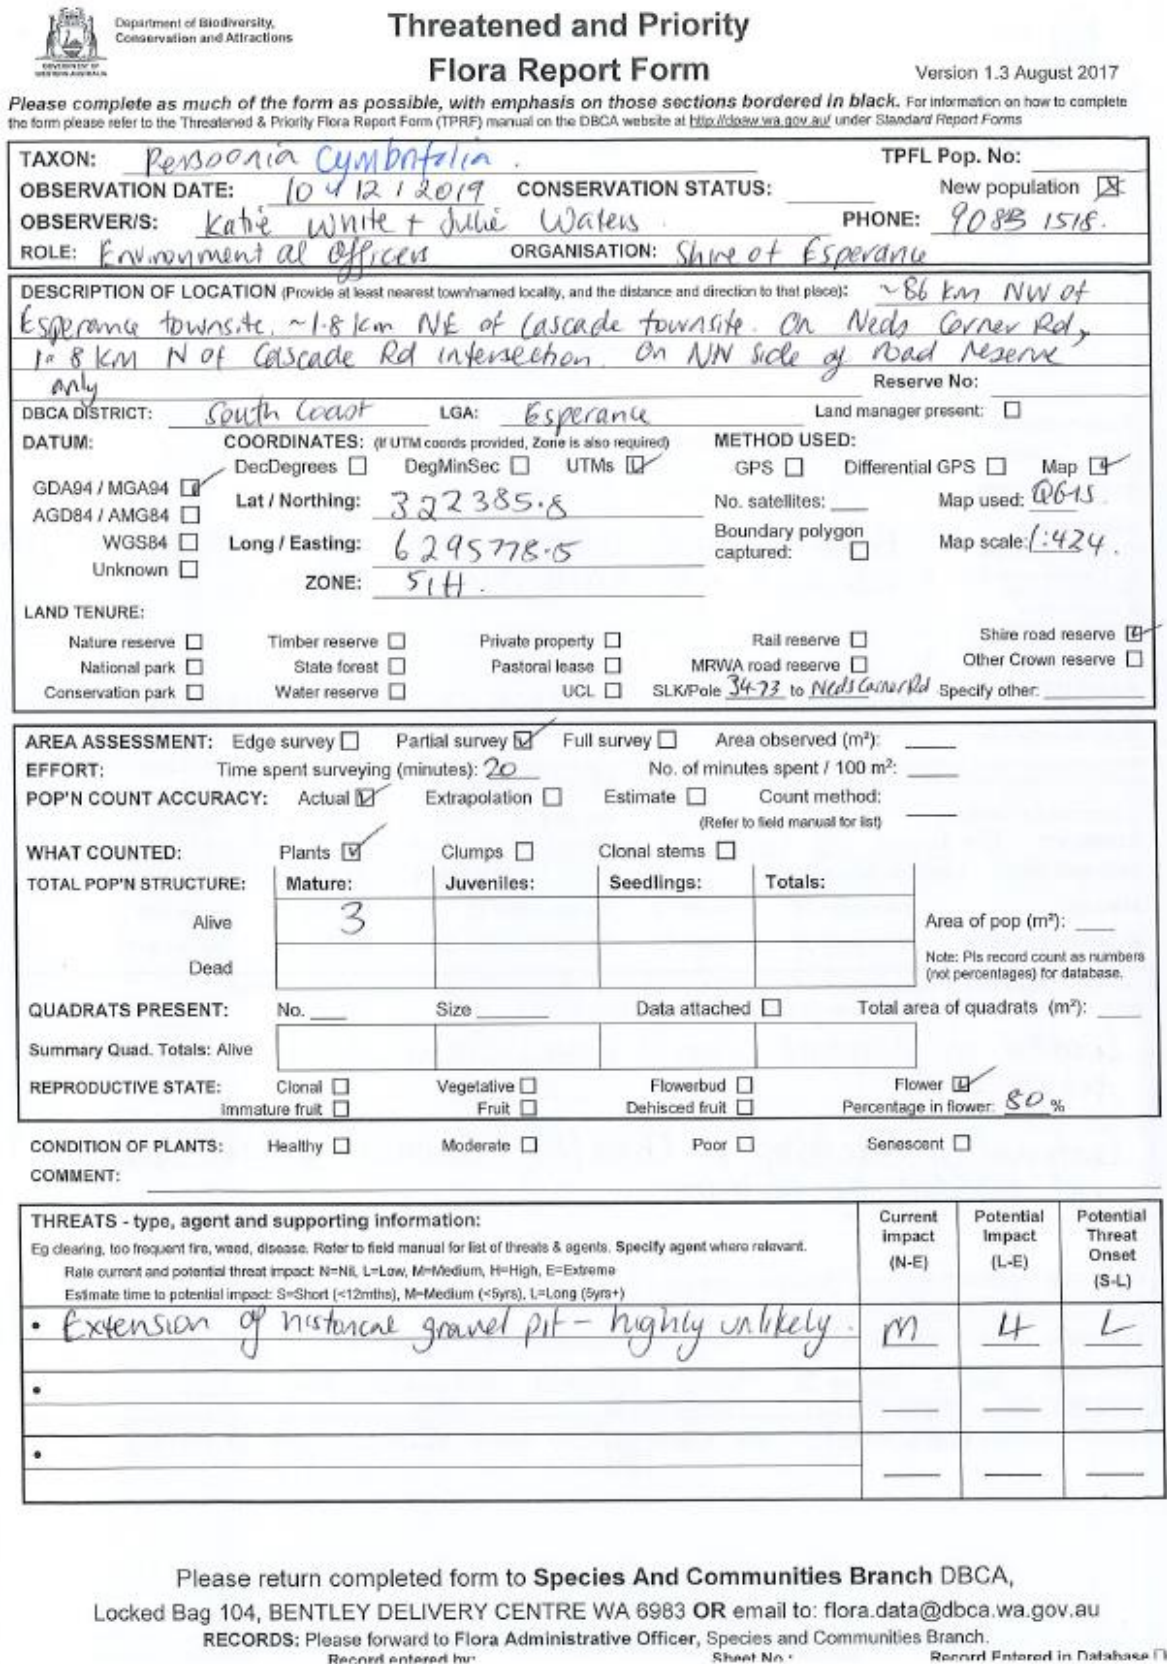 Department of Biodiversity,
Conservation and Attractions
GOVERNMENT OF
WESTERN AUSTRALIA
Threatened and Priority
Flora Report Form
Version 1.3 August 2017
Please complete as much of the form as possible, with emphasis on those sections bordered in black. For information on how to complete
the form please refer to the Threatened & Priority Flora Report Form (TPRF) manual on the DBCA website at http://dpaw.wa.gov.au/ under Standard Report Forms
TAXON: Persoonia Cymbifolia. TPFL Pop. No:
OBSERVATION DATE: 10 / 12 / 2019 CONSERVATION STATUS: New population ☒
OBSERVER/S: Katie White + Julie Waters PHONE: 9083 1518.
ROLE: Environmental Officers ORGANISATION: Shire of Esperance
DESCRIPTION OF LOCATION (Provide at least nearest town/named locality, and the distance and direction to that place): ~86 km NW of
Esperance townsite. ~1.8 km NE of Cascade townsite. On Neds Corner Rd,
1.8 KM N of Cascade Rd intersection. On NW side of road reserve
only Reserve No:
DBCA DISTRICT: South Coast LGA: Esperance Land manager present: ☐
DATUM: COORDINATES: (If UTM coords provided, Zone is also required) METHOD USED:
DecDegrees ☐ DegMinSec ☐ UTMs ☑ GPS ☐ Differential GPS ☐ Map ☑
GDA94 / MGA94 ☑ Lat / Northing: 322385.8 No. satellites: Map used: QGIS
AGD84 / AMG84 ☐
WGS84 ☐ Long / Easting: 6295778.5 Boundary polygon captured: ☐ Map scale: 1:424.
Unknown ☐ ZONE: 51H.
LAND TENURE:
Nature reserve ☐ Timber reserve ☐ Private property ☐ Rail reserve ☐ Shire road reserve ☑
National park ☐ State forest ☐ Pastoral lease ☐ MRWA road reserve ☐ Other Crown reserve ☐
Conservation park ☐ Water reserve ☐ UCL ☐ SLK/Pole 34.73 to Neds Corner Rd Specify other:
AREA ASSESSMENT: Edge survey ☐ Partial survey ☑ Full survey ☐ Area observed (m²):
EFFORT: Time spent surveying (minutes): 20 No. of minutes spent / 100 m²:
POP'N COUNT ACCURACY: Actual ☑ Extrapolation ☐ Estimate ☐ Count method:
(Refer to field manual for list)
WHAT COUNTED: Plants ☑ Clumps ☐ Clonal stems ☐
TOTAL POP'N STRUCTURE: Mature: Juveniles: Seedlings: Totals:
Alive 3 Area of pop (m²):
Dead Note: Pls record count as numbers
(not percentages) for database.
QUADRATS PRESENT: No. Size Data attached ☐ Total area of quadrats (m²):
Summary Quad. Totals: Alive
REPRODUCTIVE STATE: Clonal ☐ Vegetative ☐ Flowerbud ☐ Flower ☑
Immature fruit ☐ Fruit ☐ Dehisced fruit ☐ Percentage in flower: 80 %
CONDITION OF PLANTS: Healthy ☐ Moderate ☐ Poor ☐ Senescent ☐
COMMENT:
THREATS - type, agent and supporting information: Current impact (N-E) Potential Impact (L-E) Potential Threat Onset (S-L)
Eg clearing, too frequent fire, weed, disease. Refer to field manual for list of threats & agents. Specify agent where relevant.
Rate current and potential threat impact: N=Nil, L=Low, M=Medium, H=High, E=Extreme
Estimate time to potential impact: S=Short (<12mths), M=Medium (<5yrs), L=Long (5yrs+)
• Extension of historical gravel pit - highly unlikely. M H L
•
•
Please return completed form to Species And Communities Branch DBCA,
Locked Bag 104, BENTLEY DELIVERY CENTRE WA 6983 OR email to: flora.data@dbca.wa.gov.au
RECORDS: Please forward to Flora Administrative Officer, Species and Communities Branch.
Record entered by: Sheet No.: Record Entered in Database ☐